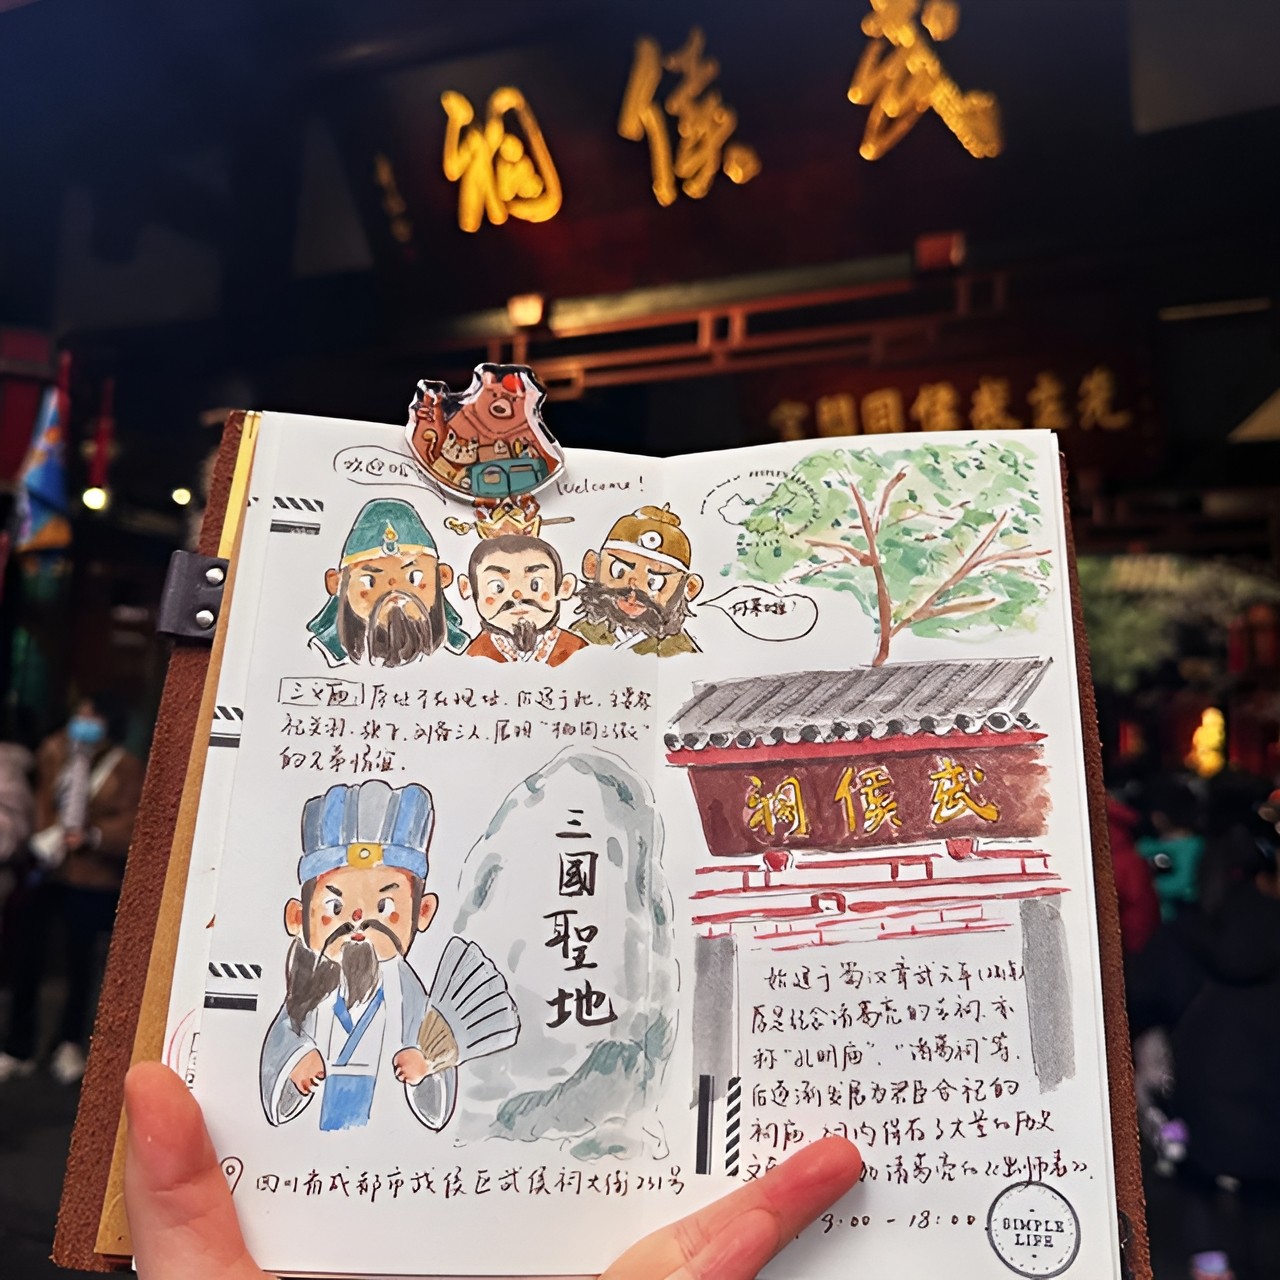 武侯祠
先主武侯同閟宫
欢迎
Welcome!
何事喧?
三义庙 原址不在现址,后迁于此,主要祭
祀关羽、张飞、刘备三人,展现“桃园三结”
的兄弟情谊.
三國聖地
祠侯武
始建于蜀汉章武元年(221年)
原是纪念诸葛亮的专祠,亦
称“孔明庙”、“诸葛祠”等,
后逐渐发展为君臣合祀的
祠庙,祠内保存了大量的历史
文 如诸葛亮的《出师表》.
9:00 - 18:00.
四川省成都市武侯区武侯祠大街231号
SIMPLE
LIFE